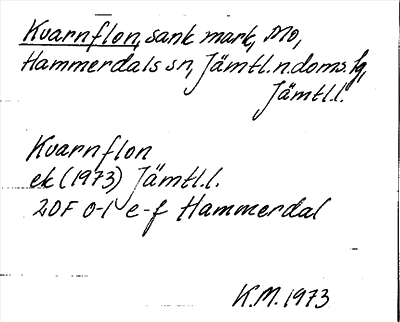 Kvarnflon, sank mark, Mo,
Hammerdals sn, Jämtl.n.doms.lg,
Jämtl.l.
Kvarnflon
ek (1973) Jämtl.l.
20F 0-1 e-f Hammerdal
K.M. 1973